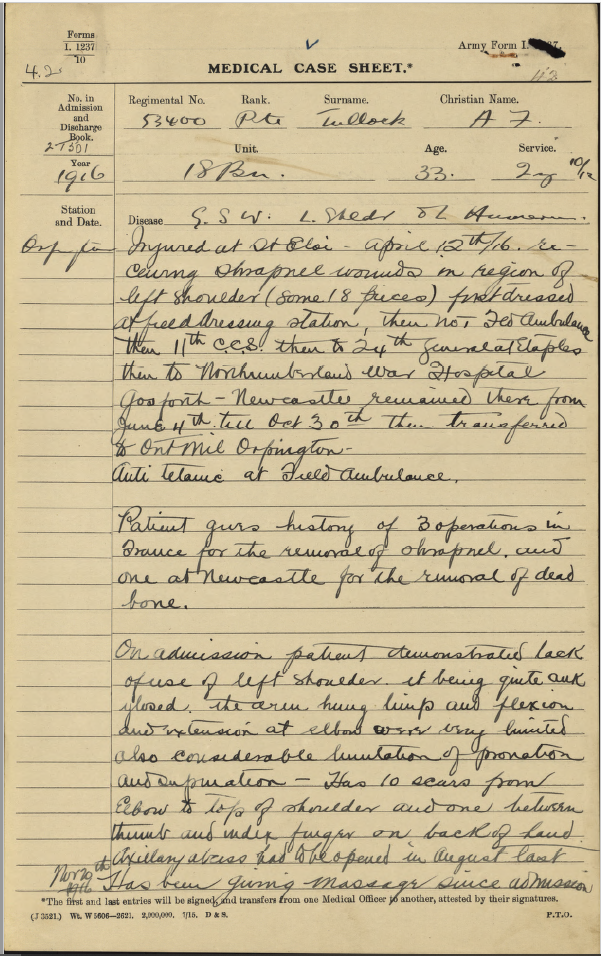 Forms
I. 1237
10
Army Form I.
4.2
42
MEDICAL CASE SHEET.*
No. in
Admission
and
Discharge
Book.
Regimental No. Rank. Surname. Christian Name.
53400 Pte Tullock A F.
Year
1916
Unit. Age. Service.
18 Bn. 33. 10/12
Station
and Date.
Disease G. S. W. L. Humerus.
Orpington
Injured at St Eloi - April 12th/16. re-
ceiving shrapnel wounds in region of
left shoulder (some 18 pieces) first dressed
at field dressing station, then No 1 Fld Ambulance
then 11th C.C.S. then to 24th General at Etaples
then to Northumberland War Hospital
Gosforth - Newcastle remained there from
June 4th till Oct 30th then transferred
to Ont Mil Orpington -
Anti tetanic at Field Ambulance.
Patient gives history of 3 operations in
France for the removal of shrapnel, and
one at Newcastle for the removal of dead
bone.
On admission patient demonstrated lack
of use of left shoulder. it being quite
. the arm hung limp and flexion
and extension at elbow were very limited
also considerable limitation of pronation
and supination - Has 10 scars from
Elbow to top of shoulder and one between
thumb and index finger on back of hand
Axillary abcess had to be opened in August last
Nov 29th
1916
Has been giving massage since admission
*The first and last entries will be signed, and transfers from one Medical Officer to another, attested by their signatures.
(J 3521.) Wt. W 5606—2621. 2,000,000. 1/15. D & S. P.T.O.